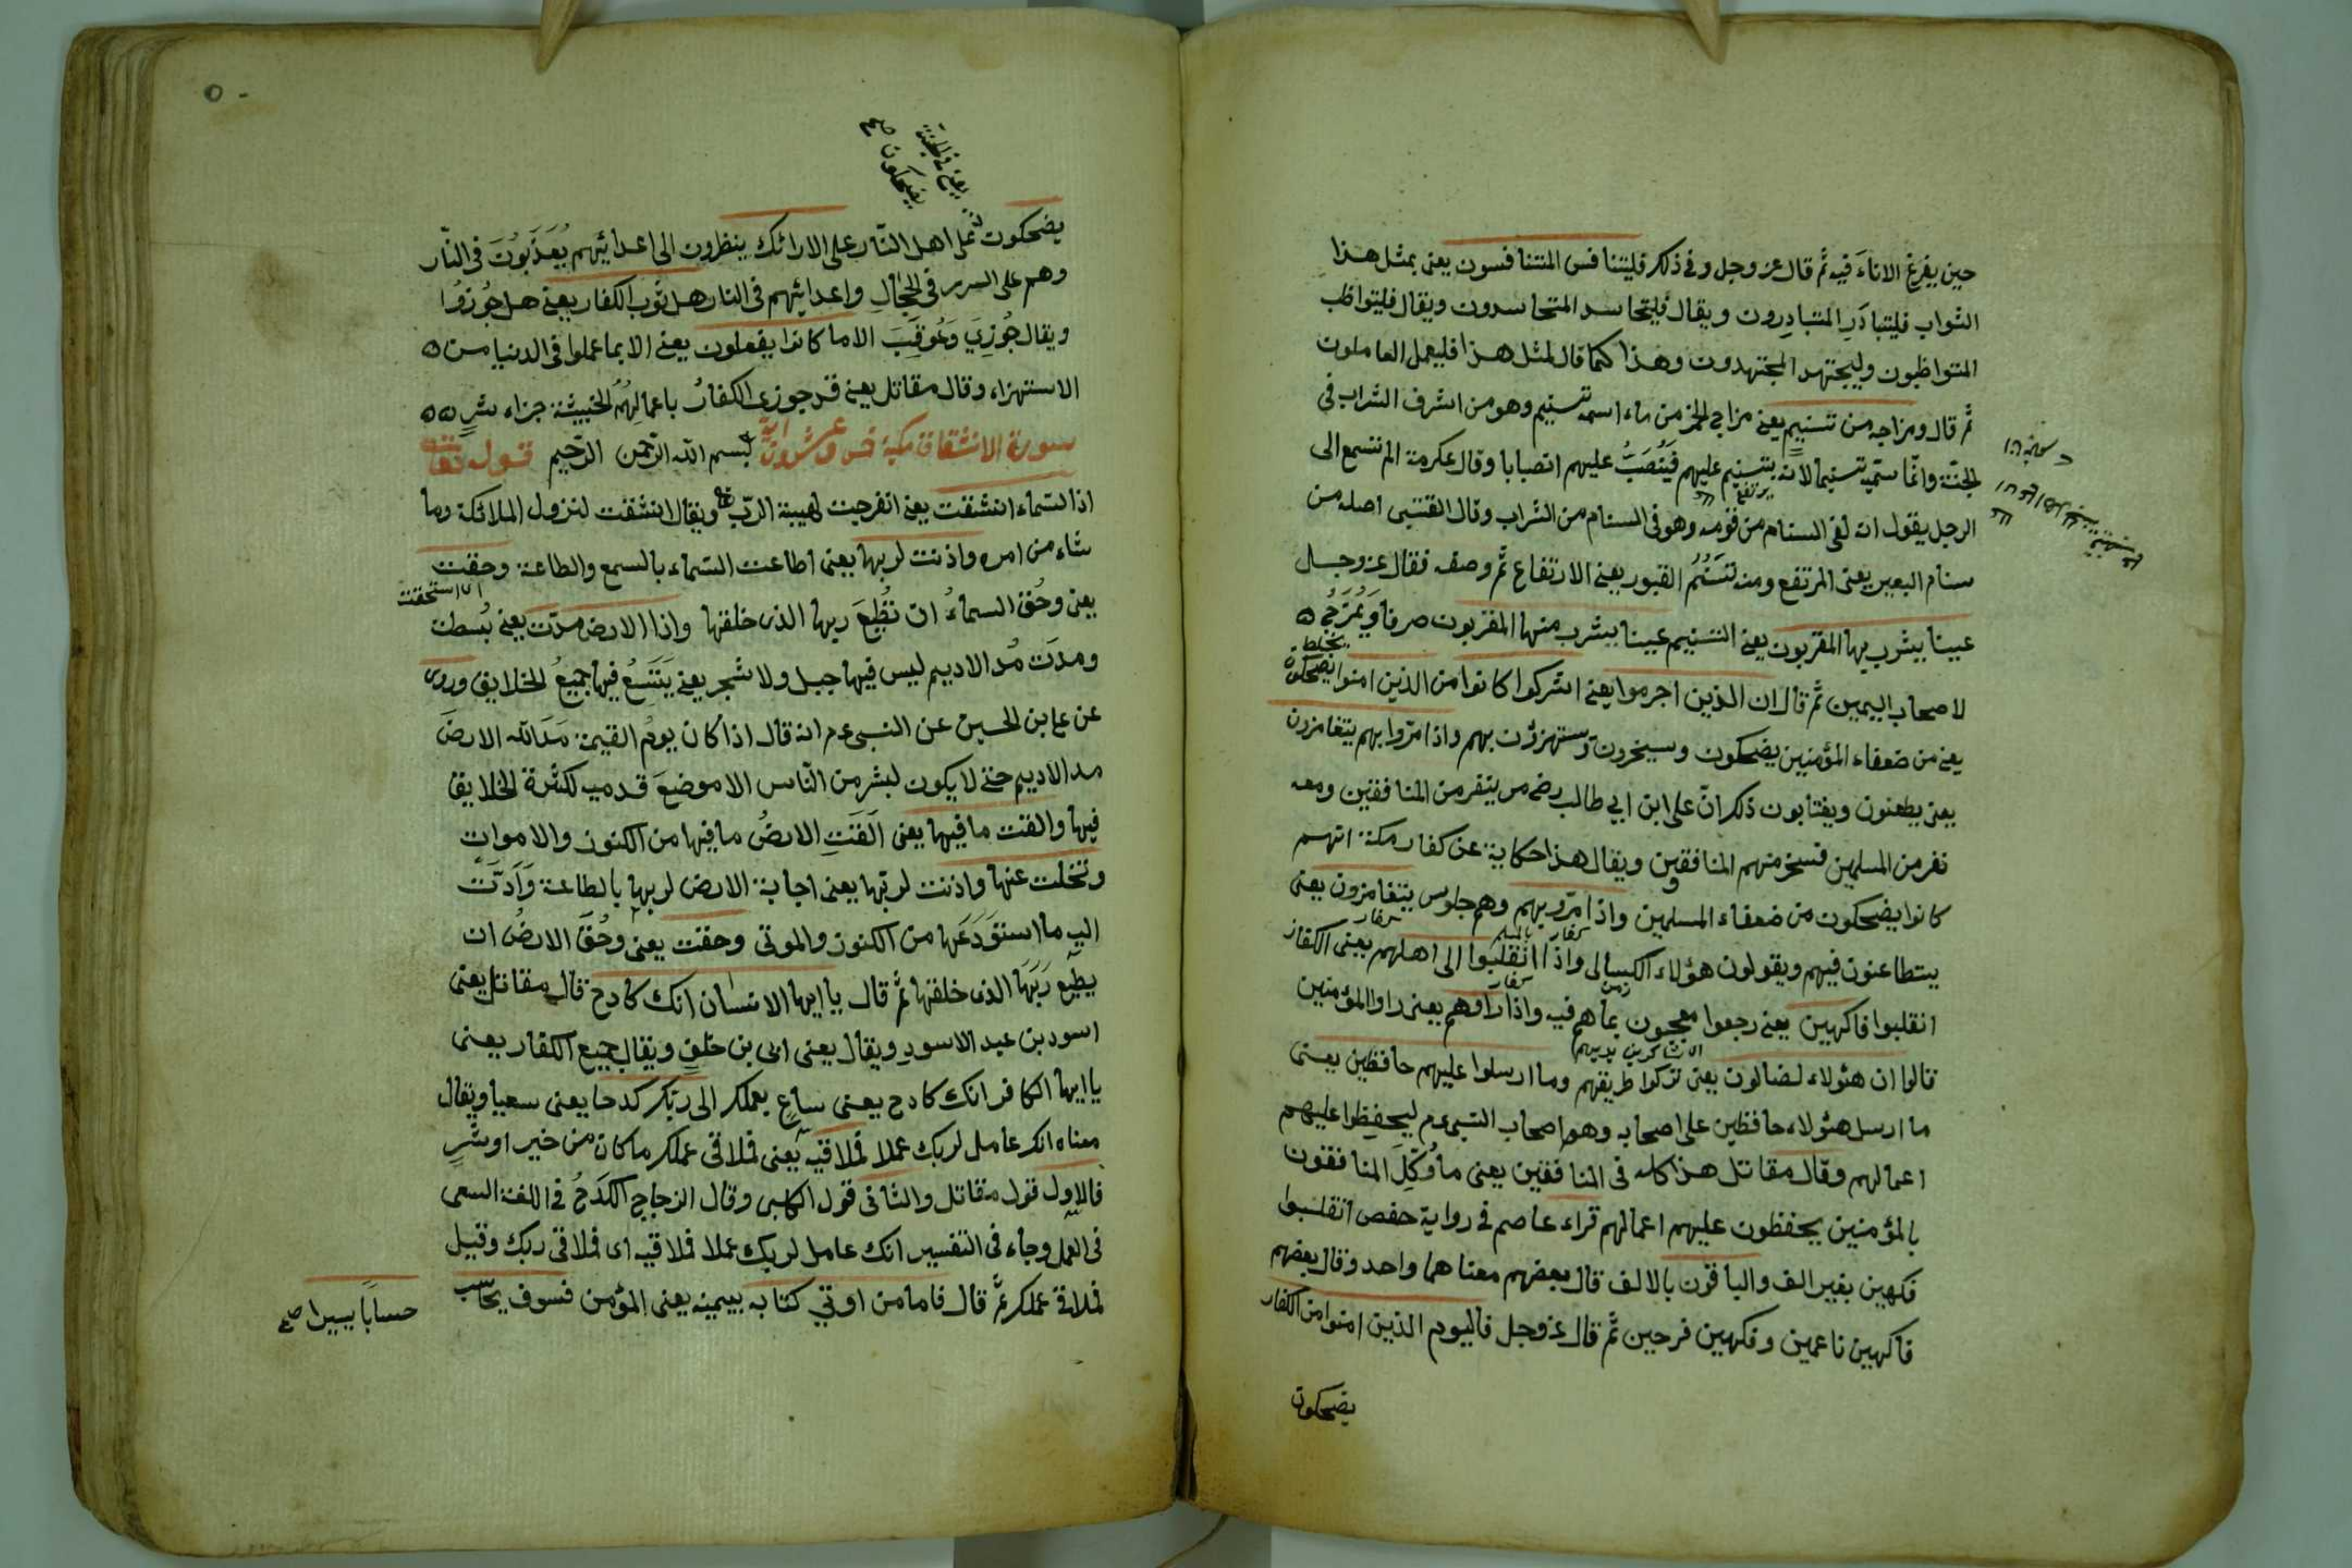 حين يفرغ الاناء فيه ثم قال عز وجل وفي ذلك فليتنافس المتنافسون يعني بمثل هذا
الثواب فليتبادر المتبادرون ويقال فليتحاسد المتحاسدون ويقال فليتواظب
المتواظبون وليجتهد المجتهدون وهذا كما قال لمثل هذا فليعمل العاملون
ثم قال ومزاجه من تسنيم يعني مزاج الخمر من ماء اسمه تسنيم وهو من اشرف الشراب في
الجنة وانما سمي تسنيما لانه يتسنم عليهم فينصب عليهم انصبابا وقال عكرمة الم تسمع الى
الرجل يقول انه لفي السنام من قومه وهو في السنام من الشراب وقال القتبي اصله من
سنام البعير يعني المرتفع ومنه تسنم القبور يعني الارتفاع ثم وصفه فقال عز وجل
عينا يشرب بها المقربون يعني التسنيم عينا يشرب منها المقربون صرفا ويمزج
يختلط
لاصحاب اليمين ثم قال ان الذين اجرموا يعني اشركوا كانوا من الذين امنوا يضحكون
يعني من ضعفاء المؤمنين يضحكون ويسخرون ويستهزؤن بهم واذا مروا بهم يتغامزون
يعني يطعنون ويغتابون ذلك ان علي ابن ابي طالب رضى مر بنفر من المنافقين ومعه
نفر من المسلمين فسخر منهم المنافقين ويقال هذا حكاية عن كفار مكة انهم
كانوا يضحكون من ضعفاء المسلمين واذا مروا بهم وهم جلوس يتغامزون يعني
يتطاعنون فيهم ويقولون هؤلاء الكسالى واذا انقلبوا الى اهلهم يعني الكفار
انقلبوا فاكهين يعني رجعوا معجبون بما هم فيه واذا راوهم يعني راوا المؤمنين
قالوا ان هئولاء لضالون يعني تركوا طريقهم وما ارسلوا عليهم حافظين يعني
ما ارسل هئولاء حافظين على اصحابه وهو اصحاب النبى عم ليحفظوا عليهم
اعمالهم وقال مقاتل هذا كله في المنافقين يعني ما وكل المنافقون
بالمؤمنين يحفظون عليهم اعمالهم قراء عاصم في رواية حفص انقلبوا
فكهين بغير الف والباقون بالالف قال بعضهم معناهما واحد وقال بعضهم
فاكهين ناعمين وفكهين فرحين ثم قال عز وجل فاليوم الذين امنوا من الكفار
يضحكون
يعني في الجنة
يضحكون صح
يضحكون على اهل النار على الارائك ينظرون الى اعدائهم يعذبون في النار
وهم على السرر في الحجال واعدائهم في النار هل ثوب الكفار يعني هل جوزوا
ويقال جوزي وعوقب الا ما كانوا يفعلون يعني الا بما عملوا في الدنيا من
الاستهزاء وقال مقاتل يعني قد جوزى الكفار باعمالهم الخبيثة جزاء شر
سورة الانشقاق مكية خمس وعشرون اية بسم الله الرحمن الرحيم قوله تعا
اذا السماء انشقت يعني انفرجت لهيبة الرب ويقال انشقت لنزول الملائكة وما
شاء من امره واذنت لربها يعنى اطاعت السماء بالسمع والطاعة وحقت
اى استحقت
يعني وحق السماء ان تطيع ربها الذى خلقها واذا الارض مدت يعني بسطت
ومدت مد الاديم ليس فيها جبل ولا شجر يعني يتسع فيها جميع الخلايق وروى
عن على بن الحسين عن النبى عم انه قال اذا كان يوم القيمة مد الله الارض
مد الاديم حتى لا يكون لبشر من الناس الا موضع قدميه لكثرة الخلايق
فيها والقت ما فيها يعنى القت الارض ما فيها من الكنوز والاموات
وتخلت عنها واذنت لربها يعنى اجابة الارض لربها بالطاعة وادت
اليه ما استودعها من الكنوز والموتى وحقت يعنى وحق الارض ان
يطيع ربها الذى خلقها ثم قال يا ايها الانسان انك كادح قال مقاتل يعنى
اسود بن عبد الاسود ويقال يعنى ابى بن خلف ويقال جميع الكفار يعنى
يا ايها الكافر انك كادح يعنى ساع بعملك الى ربك كدحا يعنى سعيا ويقال
معناه انك عامل لربك عملا فملاقيه يعنى فملاقى عملك ما كان من خير او شر
فالاول قول مقاتل والثانى قول الكلبى وقال الزجاج الكدح في اللغة السعى
فى العمل وجاء فى التفسير انك عامل لربك عملا فملاقيه اى فملاقى ربك وقيل
فملاقى عملك ثم قال فاما من اوتي كتابه بيمينه يعنى المؤمن فسوف يحاسب
حسابا يسيرا صح